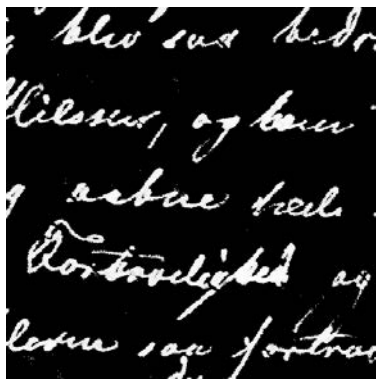 blev saa bedr
Nilssen, og ham
aabne hele
Fortrolighed og
leren saa fortro